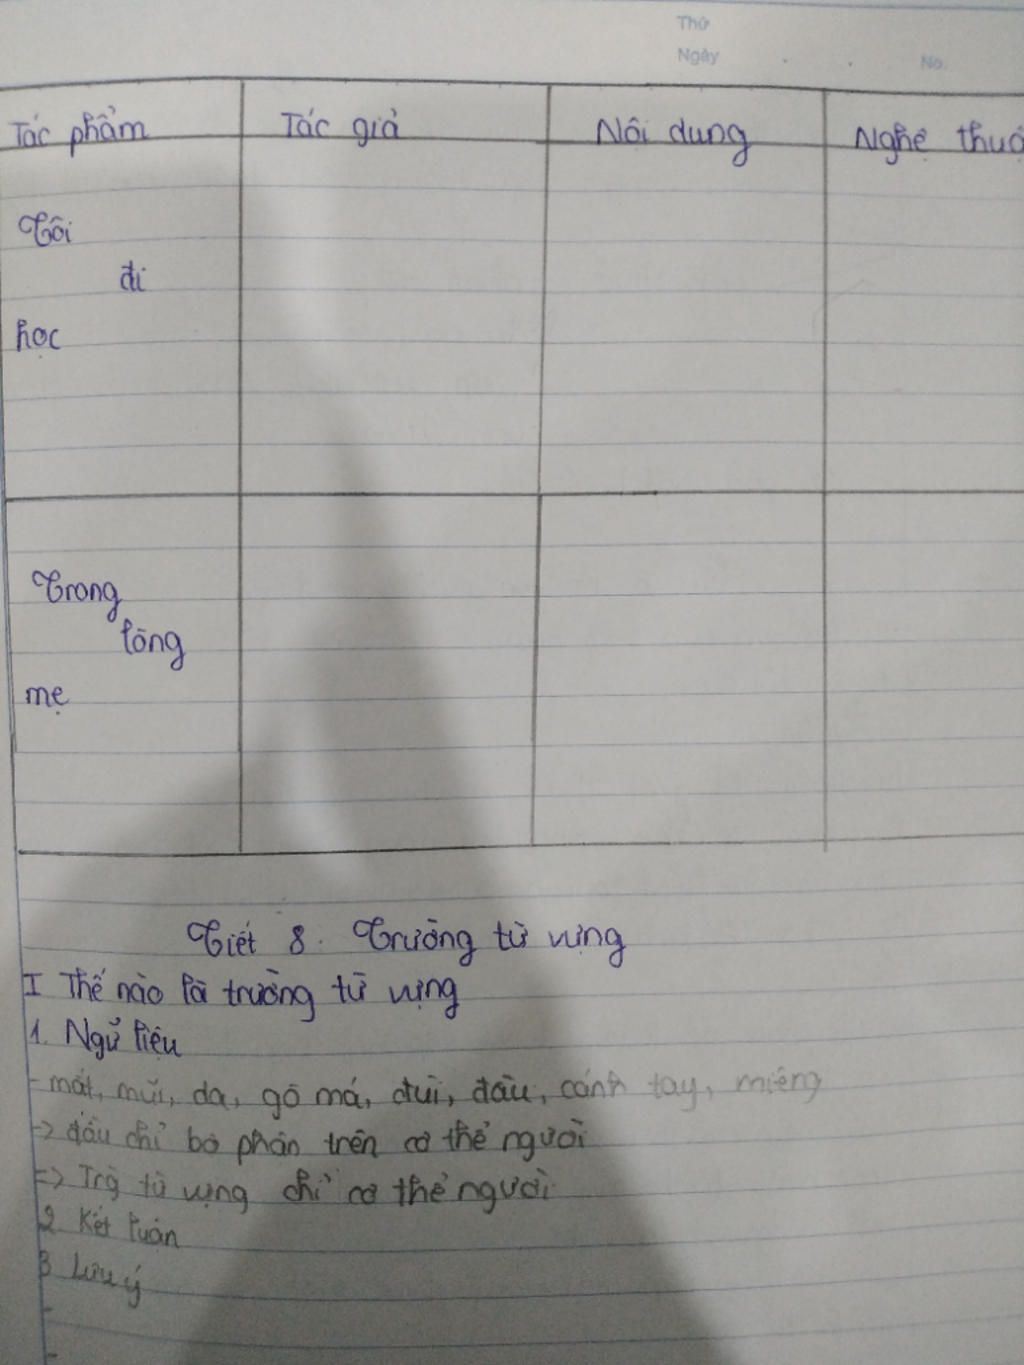 Thứ
Ngày No.
Tác phẩm Tác giả Nội dung Nghệ thuậ
Tôi
đi
học
Trong
lòng
mẹ
Tiết 8. Trường từ vựng
I Thế nào là trường từ vựng
1. Ngữ liệu
- mắt, mũi, da, gò má, đùi, đầu, cánh tay, miệng
-> đều chỉ bộ phận trên cơ thể người
=> Trg từ vựng chỉ cơ thể người
2 Kết luận
3 Lưu ý
-
-